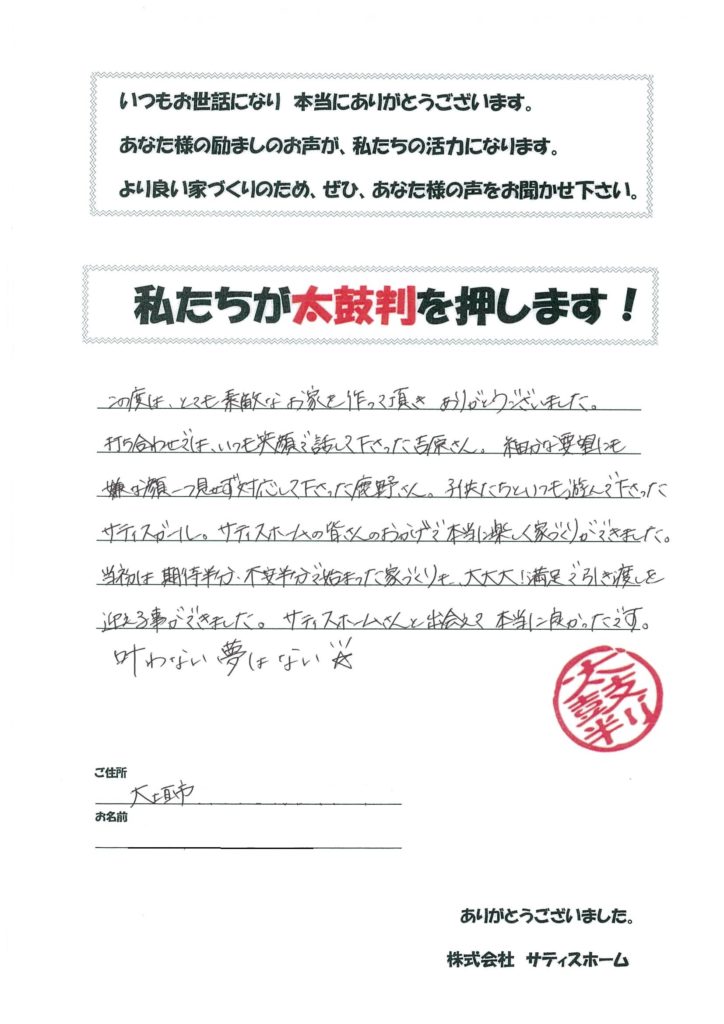 いつもお世話になり 本当にありがとうございます。
あなた様の励ましのお声が、私たちの活力になります。
より良い家づくりのため、ぜひ、あなた様の声をお聞かせ下さい。
私たちが太鼓判を押します！
この度は、とても素敵なお家を作って頂き ありがとうございました。
打ち合わせでは、いつも笑顔で話して下さった吉原さん。細かな要望にも
嫌な顔一つ見せず対応して下さった鹿野さん。子供たちといつも遊んで下さった
サティスガール。サティスホームの皆さんのおかげで本当に楽しく家づくりができました。
当初は期待半分、不安半分で始まった家づくりも、大大大！満足で引き渡しを
迎える事ができました。サティスホームさんと出会えて本当に良かったです。
叶わない夢はない☆
太鼓判
ご住所
大垣市
お名前
ありがとうございました。
株式会社 サティスホーム